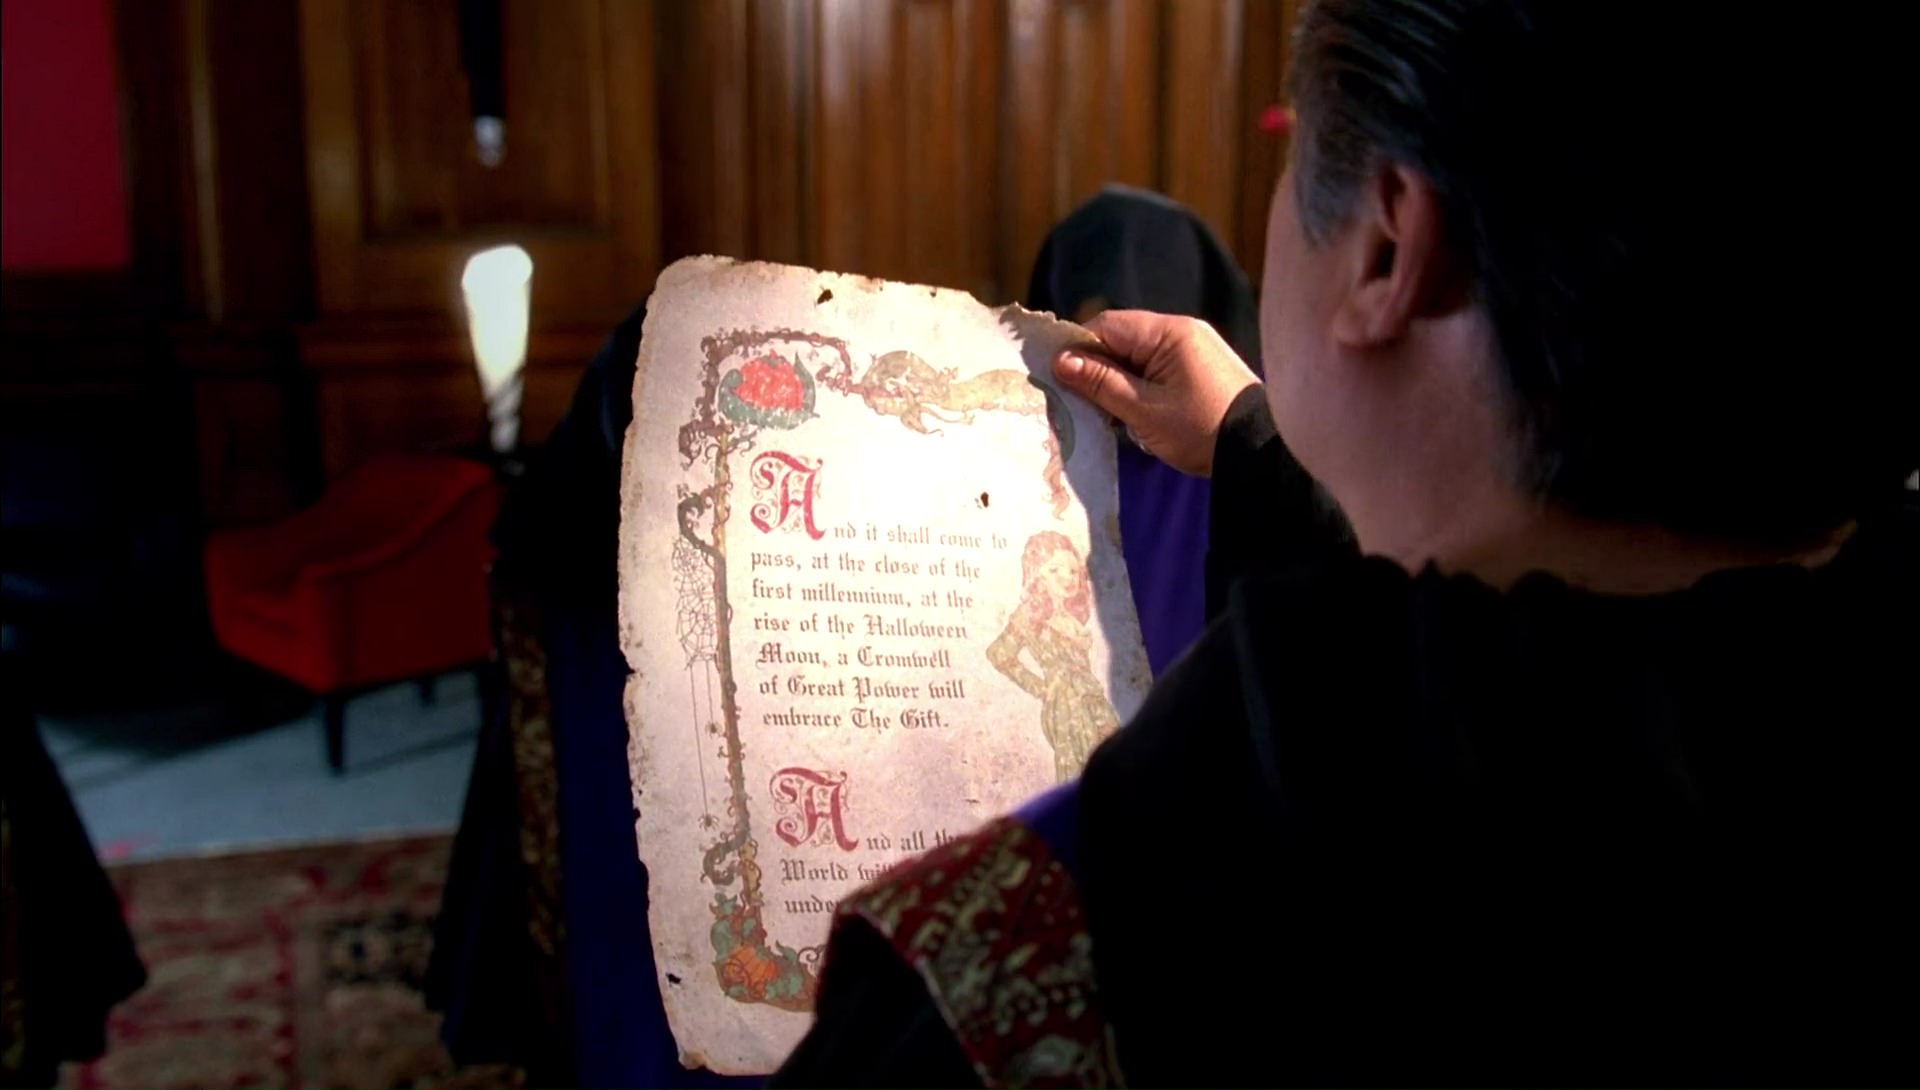 And it shall come to
pass, at the close of the
first millennium, at the
rise of the Halloween
Moon, a Cromwell
of Great Power will
embrace The Gift.
And all the
World will
unde